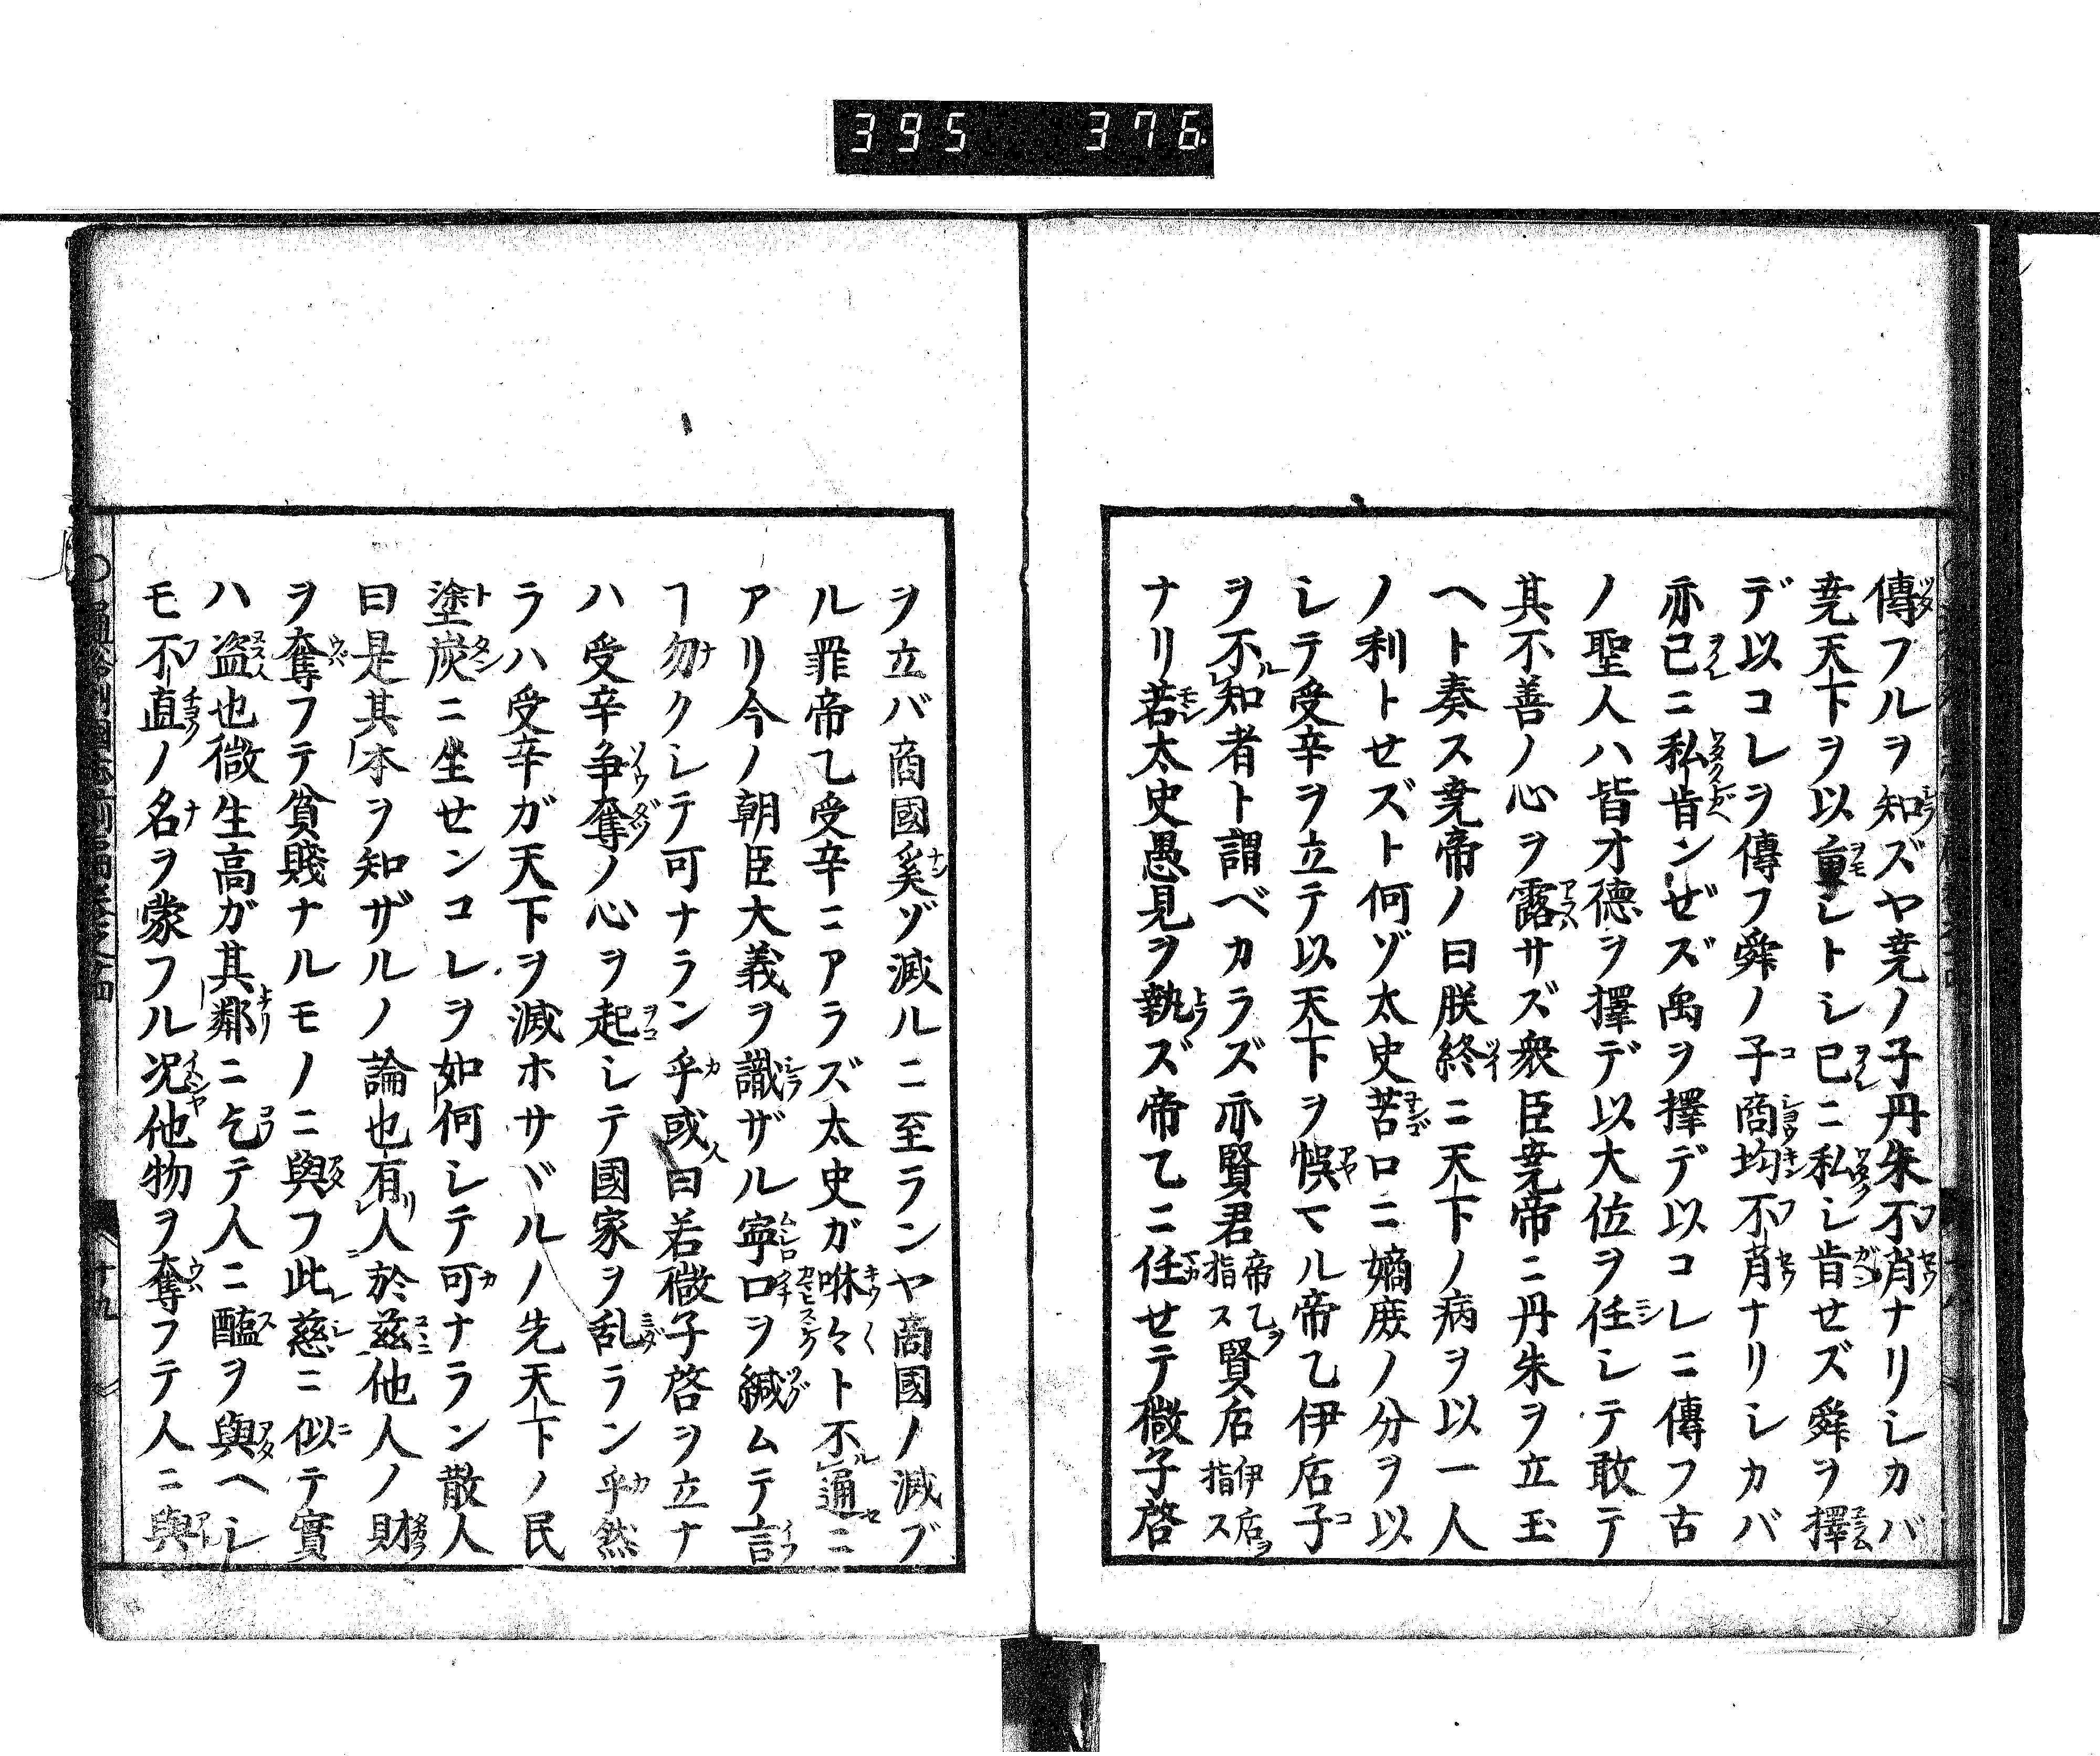 395 376
傳フルヲ知ズヤ尭ノ子丹朱不肖ナリシカバ
尭天下ヲ以重シトシ已ニ私シ肯せズ舜ヲ擇
デ以コレヲ傳フ舜ノ子商均不肖ナリシカバ
亦已ニ私肯ンぜズ禹ヲ擇デ以コレニ傳フ古
ノ聖人ハ皆才德ヲ擇デ以大位ヲ任シテ敢テ
其不善ノ心ヲ露サズ衆臣尭帝ニ丹朱ヲ立玉
ヘト奏ス尭帝ノ曰朕終ニ天下ノ病ヲ以一人
ノ利トせズト何ゾ太史苦口ニ嫡庶ノ分ヲ以
シテ受辛ヲ立テ以天下ヲ悞マル帝乙伊后子
ヲ不知者ト謂ベカラズ亦賢君帝乙ヲ指ス賢后伊后ヲ指ス
ナリ若太史愚見ヲ執ズ帝乙ニ任せテ微子啓
ヲ立バ商國奚ゾ滅ルニ至ランヤ商國ノ滅ブ
ル罪帝乙受辛ニアラズ太史ガ咻々ト不通ニ
アリ今ノ朝臣大義ヲ識ザル寧口ヲ緘ムテ言
ヿ勿クシテ可ナラン乎或曰若微子啓ヲ立ナ
ハ受辛争奪ノ心ヲ起シテ國家ヲ乱ラン乎然
ラハ受辛ガ天下ヲ滅ホサバルノ先天下ノ民
塗炭ニ坐せンコレヲ如何シテ可ナラン散人
曰是其本ヲ知ザルノ論也有人於茲他人ノ財
ヲ奪フテ貧賤ナルモノニ與フ此慈ニ似テ實
ハ盗也微生高ガ其鄰ニ乞テ人ニ醯ヲ與ヘシ
モ不直ノ名ヲ蒙フル况他物ヲ奪フテ人ニ與
十九